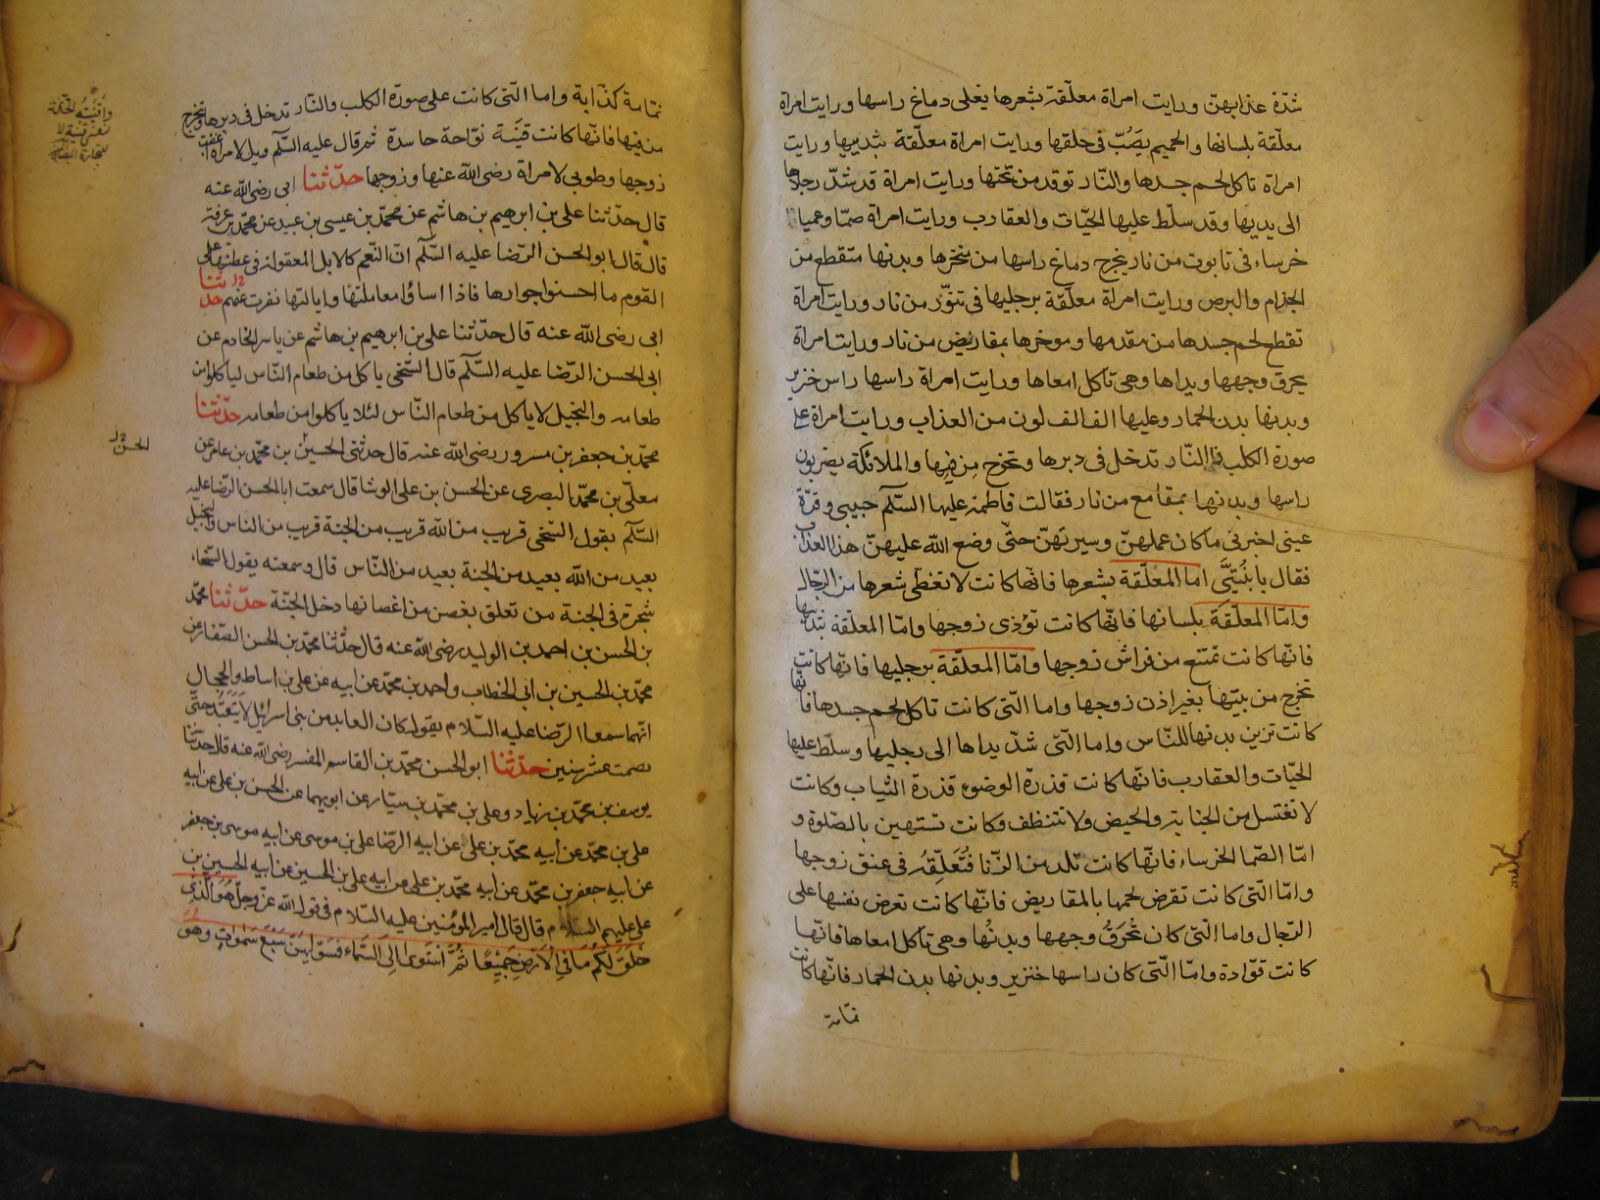 شدّة عذابهنّ ورايت امراة معلّقة بشعرها يغلى دماغ راسها ورايت امراة
معلّقة بلسانها والحميم يصبّ فى حلقها ورايت امراة معلّقة بثدييها ورايت
امراة تاكل لحم جسدها والنّار توقد من تحتها ورايت امراة قد شدّ رجلاها
الى يديها وقد سلّط عليها الحيّات والعقارب ورايت امراة صمّا وعميا
خرساء فى تابوت من نار يخرج دماغ راسها من منخرها وبدنها متقطع من
الجذام والبرص ورايت امراة معلّقة برجليها فى تنوّر من نار ورايت امراة
تقطع لحم جسدها من مقدمها وموخرها بمقاريض من نار ورايت امراة
يحرق وجهها ويداها وهى تاكل امعاها ورايت امراة راسها راس خنزير
وبدنها بدن الحمار وعليها الف الف لون من العذاب ورايت امراة على
صورة الكلب والنّار تدخل فى دبرها وتخرج من فيها والملائكة يضربون
راسها وبدنها بمقامع من نار فقالت فاطمة عليها السّلم حبيبى وقرّة
عينى اخبرنى ما كان عملهنّ وسيرتهنّ حتّى وضع الله عليهنّ هذا العذاب
فقال يا بنيّتى امّا المعلّقة بشعرها فانّها كانت لا تغطى شعرها من الرّجال
وامّا المعلّقة بلسانها فانّها كانت توذى زوجها وامّا المعلّقة بثدييها
فانّها كانت تمتنع من فراش زوجها وامّا المعلّقة برجليها فانّها كانت
تخرج من بيتها بغير اذن زوجها واما الّتى كانت تاكل لحم جسدها فانّها
كانت تزين بدنها للنّاس واما الّتى شدّ يداها الى رجليها وسلّط عليها
الحيّات والعقارب فانّها كانت قذرة الوضوء قذرة الثياب وكانت
لا تغتسل من الجنابة والحيض ولا تتنظف وكانت تستهين بالصّلوة و
امّا الصّما الخرساء فانّها كانت تلد من الزّنا فتعلّقه فى عنق زوجها
وامّا الّتى كانت تقرض لحمها بالمقاريض فانّها كانت تعرض نفسها على
الرّجال واما الّتى كان تحرق وجهها وبدنها وهى تاكل امعاها فانّها
كانت قوّادة وامّا الّتى كان راسها خنزير وبدنها بدن الحمار فانّها كانت
نمّامة
نمّامة كذّابة واما الّتى كانت على صورة الكلب والنّار تدخل فى دبرها وتخرج
من فيها فانّها كانت قينة نوّاحة حاسدة ثم قال عليه السّلم ويل لامراة اغضبت
زوجها وطوبى لامراة رضى الله عنها وزوجها حدّثنا ابى رضى الله عنه
قال حدّثنا على بن ابرهيم بن هاشم عن محمّد بن عيسى بن عبيد عن محمّد بن عرفة
قال قال ابو الحسن الرّضا عليه السّلم انّ النّعم كالابل المعقولة فى عطنها على
القوم ما احسنوا جوارها فاذا اساؤا معاملتها وايالتها نفرت عنهم حدّثنا
ابى رضى الله عنه قال حدّثنا على بن ابرهيم بن هاشم عن ياسر الخادم عن
ابى الحسن الرّضا عليه السّلم قال السّخى ياكل من طعام النّاس لياكلوا من
طعامه والبخيل لا ياكل من طعام النّاس لئلا ياكلوا من طعامه حدّثنا
محمّد بن جعفر بن مسرور رضى الله عنه قال حدثنى الحسين بن محمّد بن عامر عن
الحسن
معلّى بن محمّد البصرى عن الحسن بن على الوشا قال سمعت ابا الحسن الرّضا عليه
السّلم يقول السّخى قريب من الله قريب من الجنة قريب من الناس والبخيل
بعيد من الله بعيد من الجنة بعيد من النّاس قال وسمعته يقول السّخاء
شجرة فى الجنة من تعلق بغصن من اغصانها دخل الجنّة حدّثنا محمّد
بن الحسن بن احمد بن الوليد رضى الله عنه قال حدّثنا محمّد بن الحسن الصّفار عن
محمّد بن الحسين بن ابى الخطاب واحمد بن محمّد عن ابيه عن على بن اساط والحجال
انّهما سمعا الرّضا عليه السّلام يقول كان العابد من بنى اسرائيل لا يتعبّد حتّى
يصمت عشر سنين حدّثنا ابو الحسن محمّد بن القاسم المفسر رضى الله عنه قال حدّثنا
يوسف بن محمّد بن زياد وعلى بن محمّد بن سيّار عن ابويهما عن الحسن بن على عن ابيه
على بن محمّد عن ابيه محمّد بن على عن ابيه الرّضا على بن موسى عن ابيه موسى بن جعفر
عن ابيه جعفر بن محمّد عن ابيه محمّد بن على عن ابيه على بن الحسين عن ابيه الحسين بن
على عليهم السلام قال قال امير المؤمنين عليه السّلام فى قول الله عزّ وجلّ هُوَ الَّذِى
خَلَقَ لَكُمْ مَا فِى الْاَرْضِ جَمِيْعًا ثُمَّ اسْتَوَى اِلَى السَّمَاء فَسَوّٰيهُنَّ سَبْعَ سَمٰوَاتٍ وَهُوَ